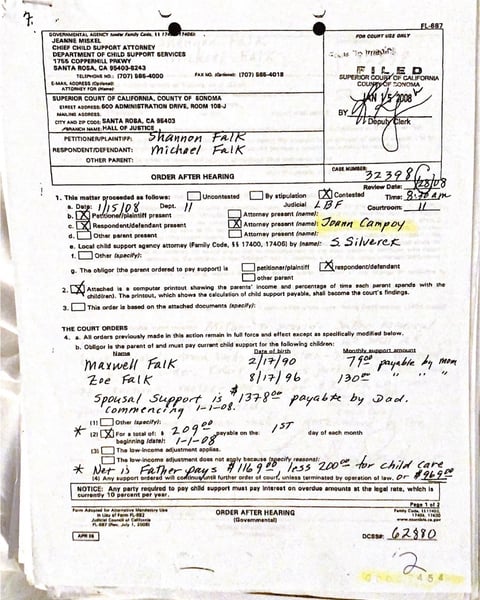 7.
FL-687
GOVERNMENTAL AGENCY (under Family Code, §§ 17400, 17406):
JEANNE MISKEL
CHIEF CHILD SUPPORT ATTORNEY
DEPARTMENT OF CHILD SUPPORT SERVICES
1755 COPPERHILL PRKWY
SANTA ROSA, CA 95403-8243
TELEPHONE NO.: (707) 565-4000 FAX NO. (Optional): (707) 565-4018
E-MAIL ADDRESS (Optional):
ATTORNEY FOR (Name):
FOR COURT USE ONLY
FILED
SUPERIOR COURT OF CALIFORNIA
COUNTY OF SONOMA
JAN 15 2008
BY
Deputy Clerk
SUPERIOR COURT OF CALIFORNIA, COUNTY OF SONOMA
STREET ADDRESS: 600 ADMINISTRATION DRIVE, ROOM 108-J
MAILING ADDRESS:
CITY AND ZIP CODE: SANTA ROSA, CA 95403
BRANCH NAME: HALL OF JUSTICE
PETITIONER/PLAINTIFF: Shannon Falk
RESPONDENT/DEFENDANT: Michael Falk
OTHER PARENT:
ORDER AFTER HEARING
CASE NUMBER:
32398
Review Date: /28/08
Time: 8:30 am
Courtroom: 11
1. This matter proceeded as follows: Uncontested By stipulation X Contested
a. Date: 1/15/08 Dept. 11 Judicial LBF
b. X Petitioner/plaintiff present Attorney present (name):
c. X Respondent/defendant present X Attorney present (name): Joann Campoy
d. Other parent present Attorney present (name):
e. Local child support agency attorney (Family Code, §§ 17400, 17406) by (name): S. Silverek
f. Other (specify):
g. The obligor (the parent ordered to pay support) is petitioner/plaintiff X respondent/defendant
other parent
2. X Attached is a computer printout showing the parents' income and percentage of time each parent spends with the
children). The printout, which shows the calculation of child support payable, shall become the court's findings.
3. This order is based on the attached documents (specify):
THE COURT ORDERS
4. a. All orders previously made in this action remain in full force and effect except as specifically modified below.
b. Obligor is the parent of and must pay current child support for the following children:
Name Date of birth Monthly support amount
Maxwell Falk 2/17/90 79.00 payable by mom
Zoe Falk 8/17/96 130.00 " " "
Spousal Support is $1378.00 payable by Dad.
commencing 1-1-08.
(1) Other (specify):
* (2) X For a total of: $ 209.00 payable on the 1ST day of each month
beginning (date): 1-1-08
(3) The low-income adjustment applies.
The low-income adjustment does not apply because (specify reasons):
* Net is Father pays $1169.00, less 200.00 for child care
(4) Any support ordered will continue until further order of court, unless terminated by operation of law. or $969.00
NOTICE: Any party required to pay child support must pay interest on overdue amounts at the legal rate, which is
currently 10 percent per year.
Page 1 of 2
Form Adopted for Alternative Mandatory Use
In Lieu of Form FL-692
Judicial Council of California
FL-687 (Rev. July 1, 2005)
ORDER AFTER HEARING
(Governmental)
Family Code, §§ 17400,
17402, 17406
DCSS#: 62880
2